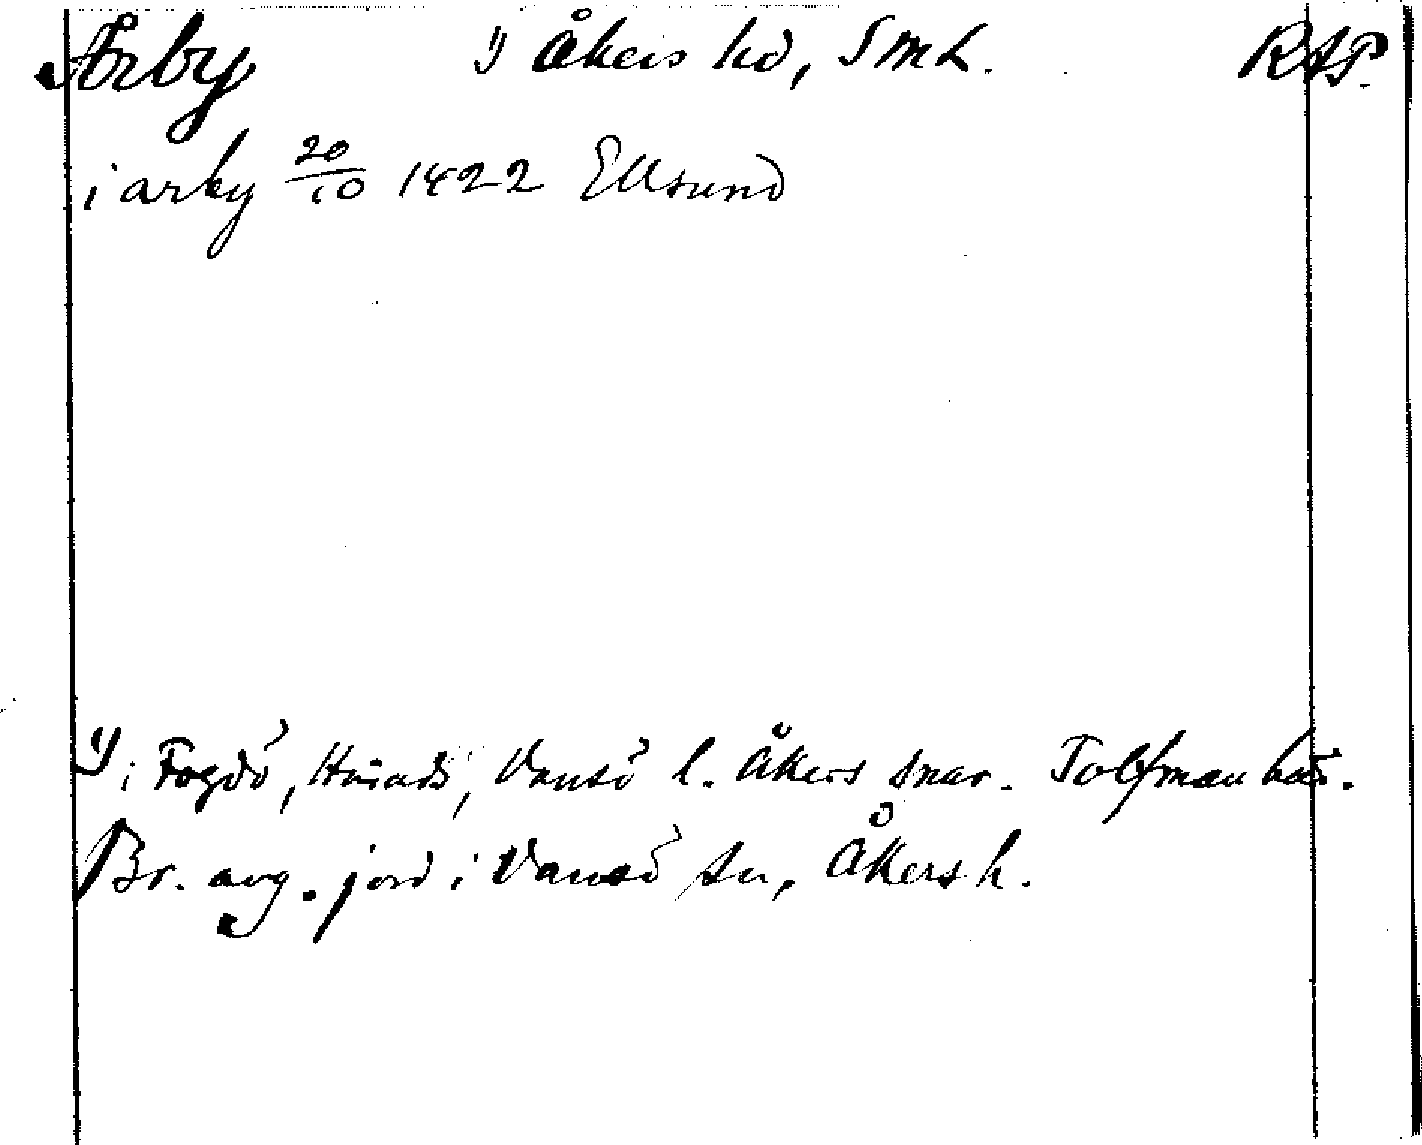 Årby y Åkers hd, SmL. RAP.
i arby 20/10 1422 Ellsund
y i Fogdö, Härads, Vansö l. Åkers snar. Tolfmanhas.
Br. avg. jord i Vansö sn, Åkers h.